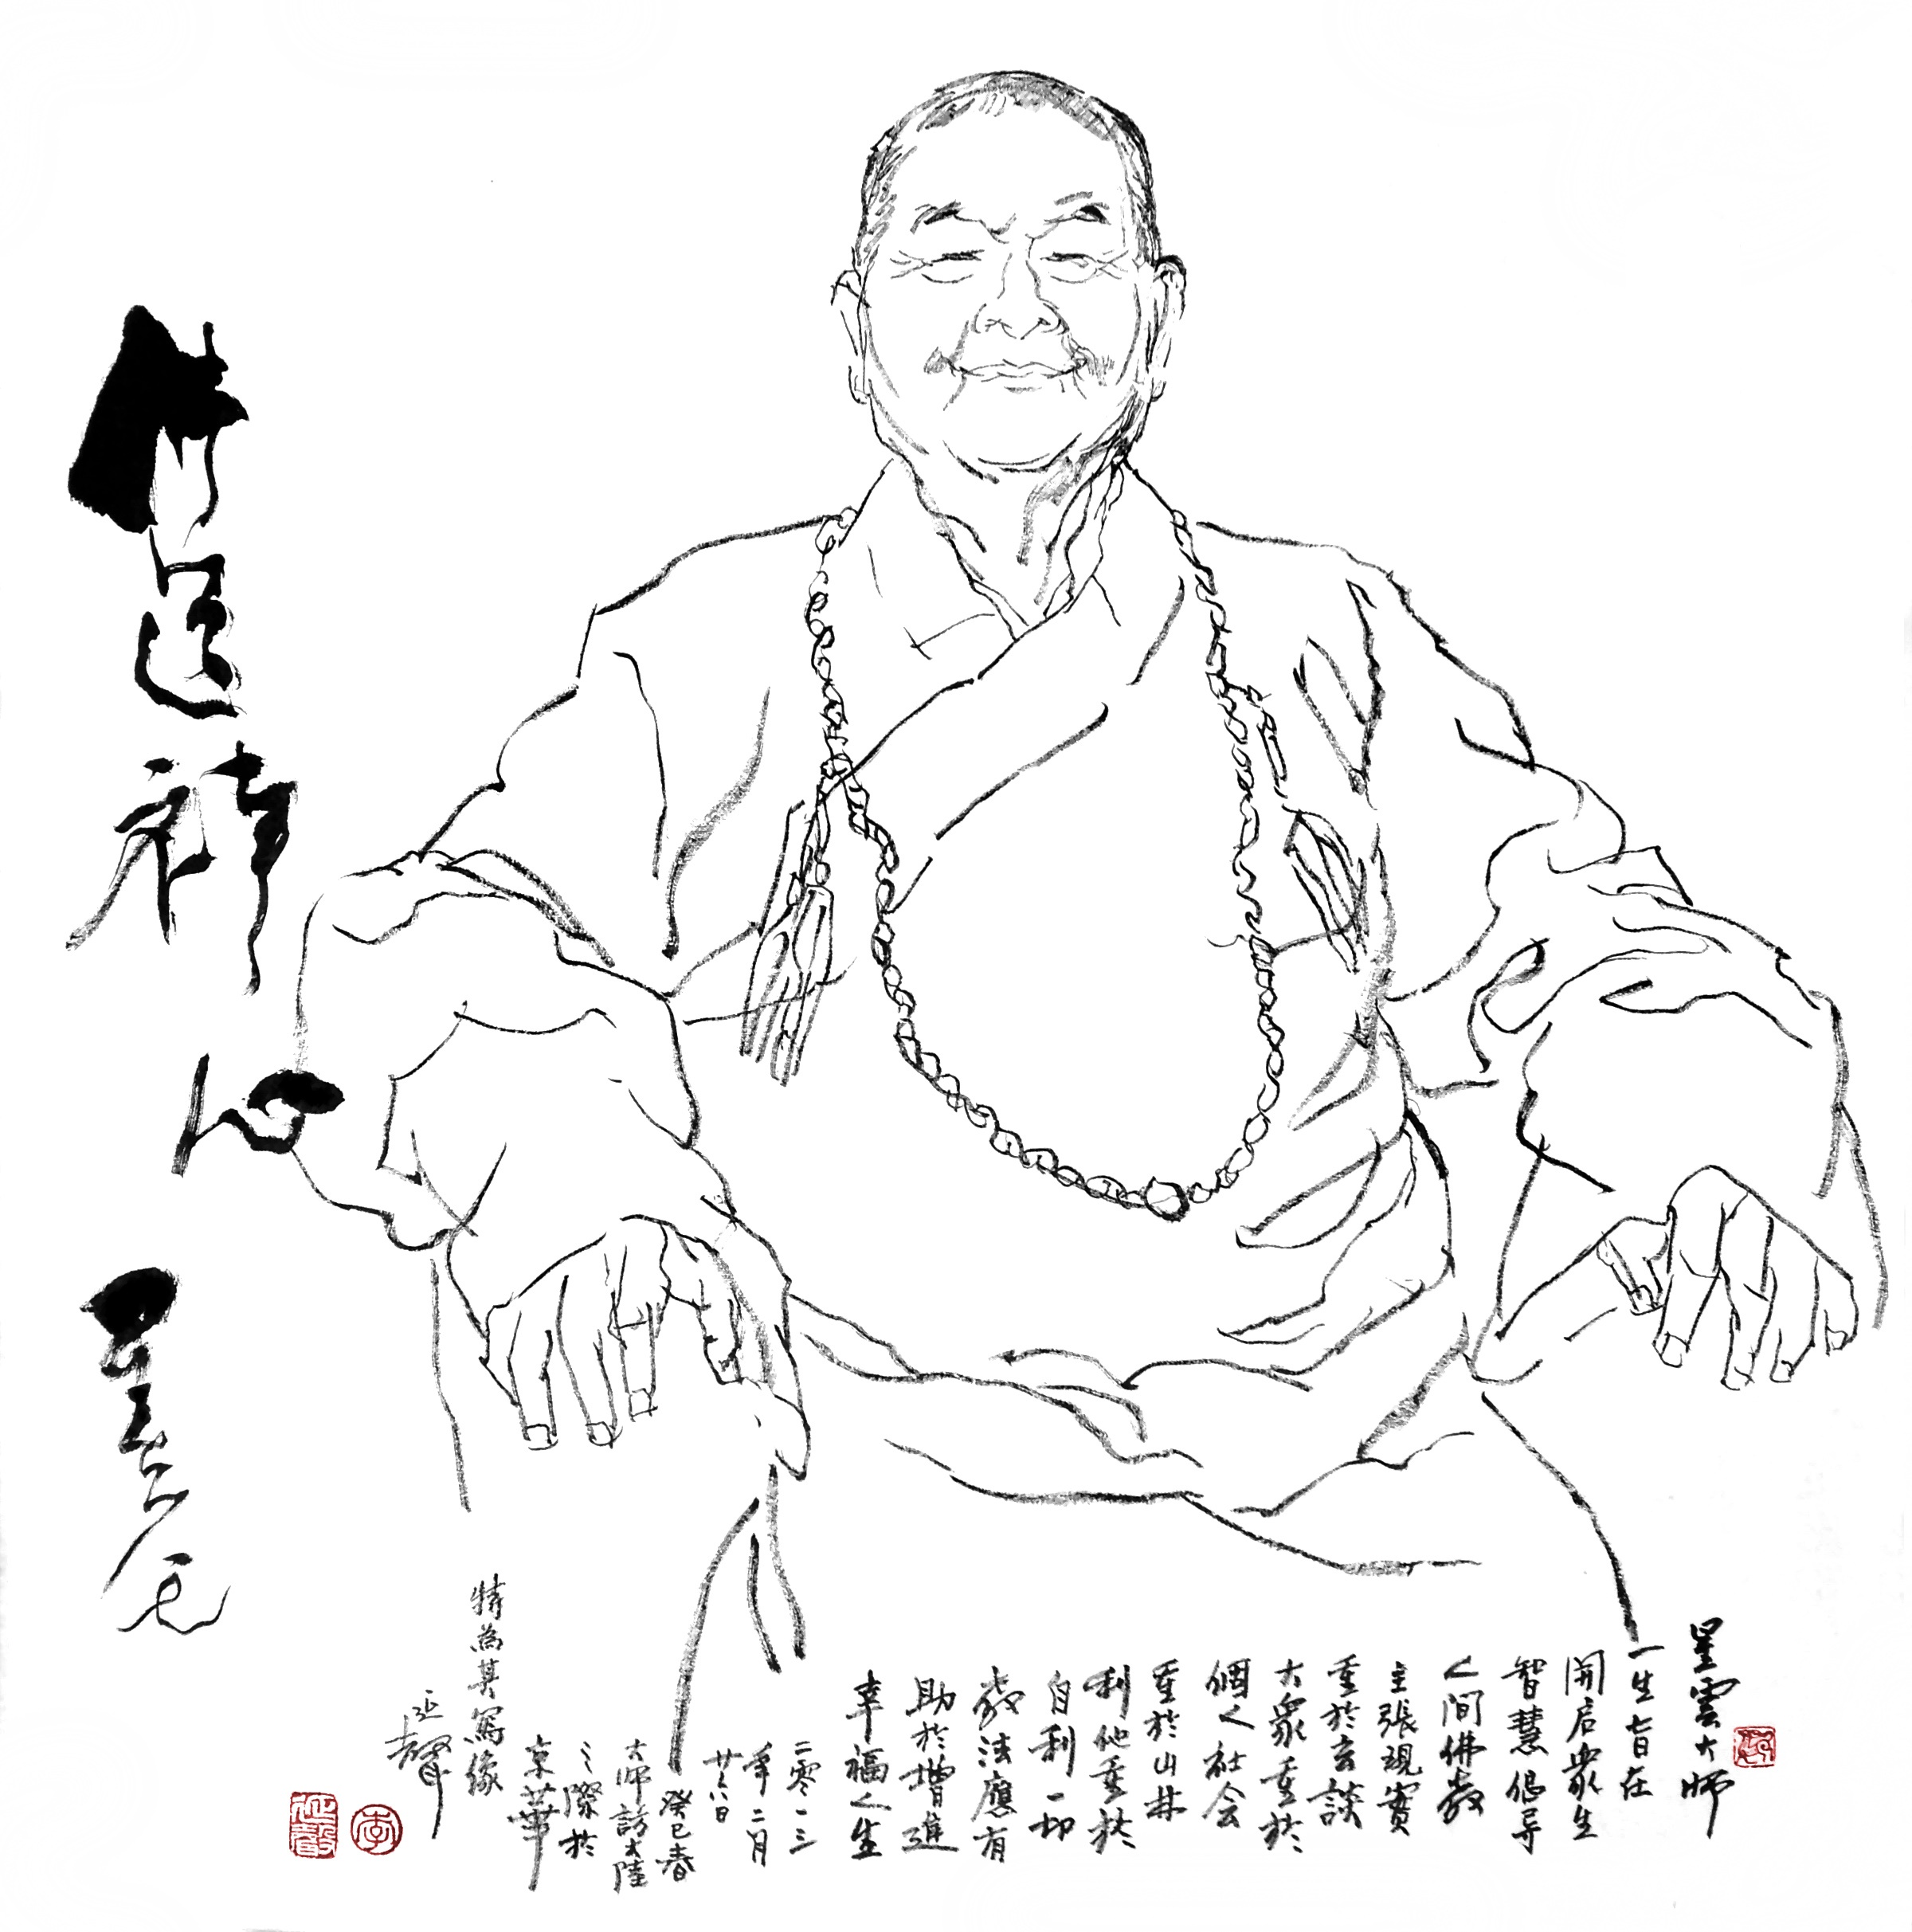 星雲大師
一生旨在
開启衆生
智慧倡导
人間佛教
主張現實
重於玄談
大衆重於
個人社会
重於山林
利他重於
自利一切
教法應有
助於增進
幸福人生
二零一三
年二月
廿六日
癸巳春
大师訪大陸
之際於
京華
特為其寫像
延聲
道禪心
星雲